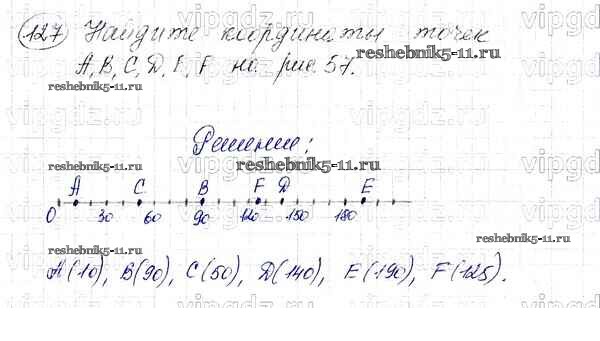 127 Найдите координаты точек
reshebnik5-11.ru
A, B, C, D, E, F на рис. 57.
reshebnik5-11.ru
Решение:
reshebnik5-11.ru reshebnik5-11.ru
A C B F D E
0 30 60 90 120 150 180
reshebnik5-11.ru reshebnik5-11.ru
A(10), B(90), C(50), D(140), E(190), F(125).
reshebnik5-11.ru
vipgdz.ru